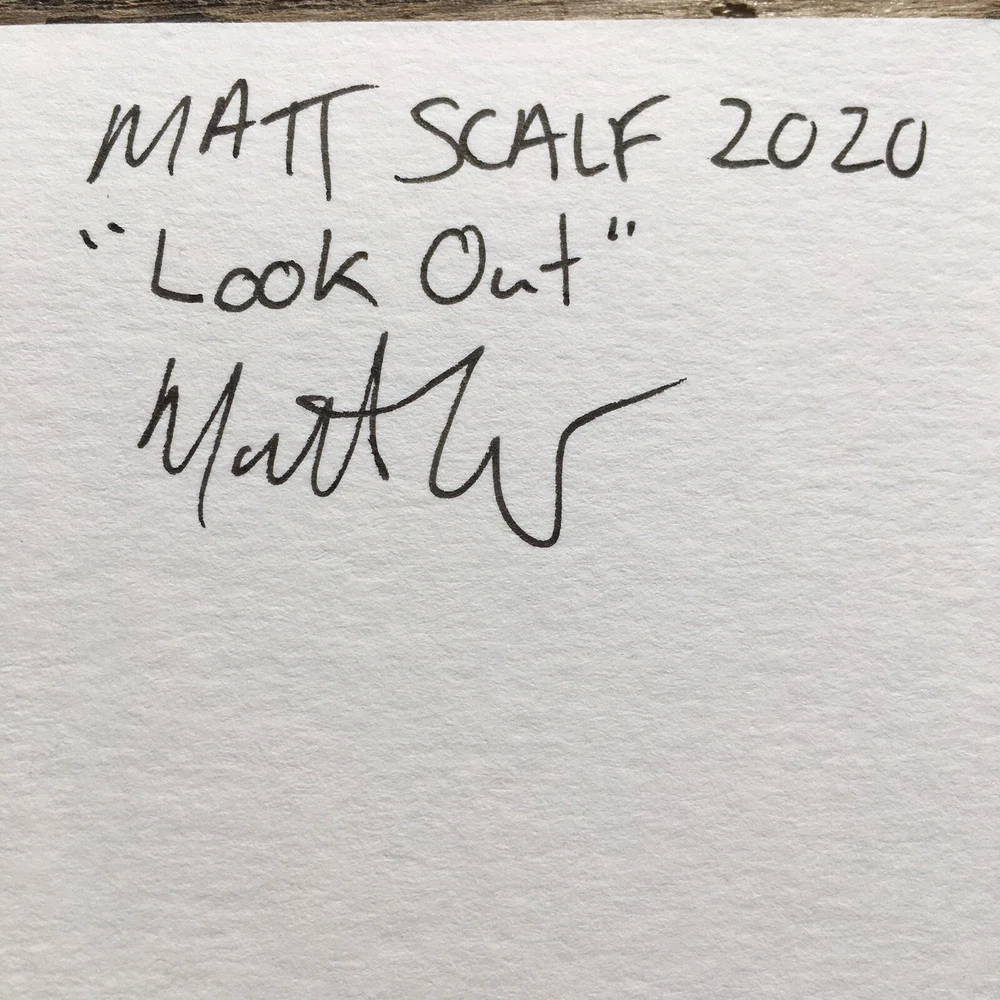 MATT SCALF 2020
"Look Out"
Matt